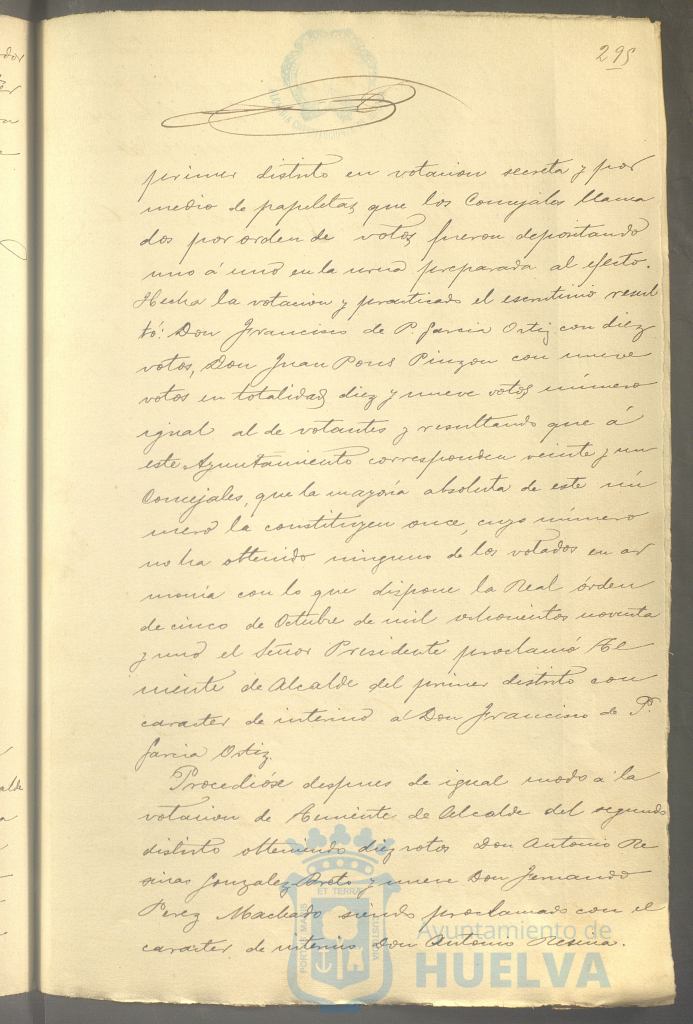 295
primer distrito en votacion secreta y por
medio de papeletas que los Concejales llama
dos por orden de votos fueron depositando
uno á uno en la urna preparada al efecto.
Hecha la votacion y practicado el escrutinio resul
tó: Don Francisco de P. Garcia Ortiz con diez
votos, Don Juan Pons Pinzon con nueve
votos en totalidad diez y nueve votos número
igual al de votantes y resultando que á
este Ayuntamiento corresponden veinte y un
Concejales, que la mayoría absoluta de este nú
mero la constituyen once, cuyo número
no ha obtenido ninguno de los votados en ar
monia con lo que dispone la Real órden
de cinco de Octubre de mil ochocientos noventa
y uno el Señor Presidente proclamó Te
niente de Alcalde del primer distrito con
caracter de interino á Don Francisco de P.
Garcia Ortiz.
Procedióse despues de igual modo á la
votacion de Teniente de Alcalde del segundo
distrito obteniendo diez votos Don Antonio Re
sinas Gonzalez Proto y nueve Don Fernando
Perez Machado siendo proclamado con el
caracter de interino Don Antonio Resina.
Ayuntamiento de
HUELVA
PORTUS MARIS
ET TERRAE
CUSTODIA